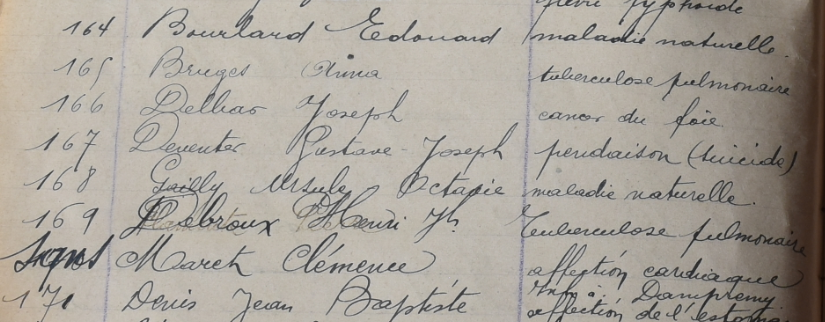 fièvre typhoïde
164 Bourlard Edouard maladie naturelle.
165 Bruges Anna tuberculose pulmonaire
166 Delhao Joseph cancer du foie
167 Deventer Gustave Joseph pendaison (suicide)
168 Gailly Ursule Octavie maladie naturelle.
169 Debroux Henri Jh. Tuberculose pulmonaire
Maret Clémence affection cardiaque
à Dampremy.
171 Denis Jean Baptiste affection de l'estomac